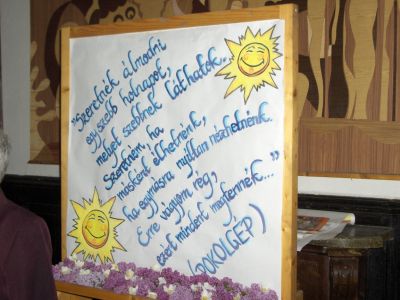 "Szeretnék álmodni
egy szebb holnapot,
melyet szebbnek láthatok.
Szeretném, ha
másként élhetnénk,
ha egymásra nyíltan nézhetnénk.
Erre vágyom rég,
ezért mindent megtennék..."
(POKOLGÉP)